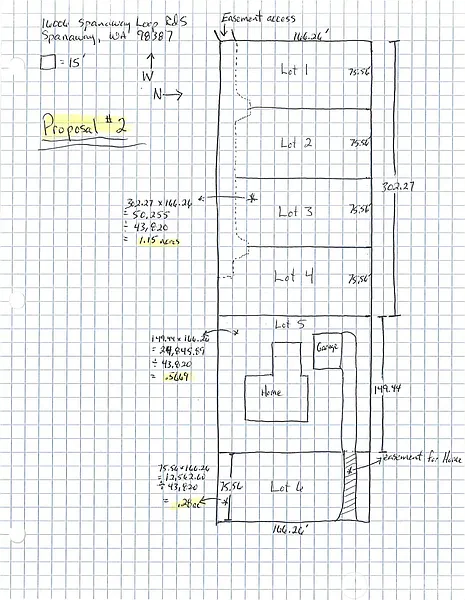 16006 Spanaway Loop Rd S
Spanaway, WA 98387
= 15'
W
N
Proposal #2
Easement access
166.26'
Lot 1
75.56'
Lot 2
75.56'
302.27
302.27 x 166.26
= 50,255
÷ 43,820
= 1.15 acres
Lot 3
75.56'
Lot 4
75.56'
Lot 5
149.44 x 166.26
= 24,845.89
÷ 43,820
= .5669
Garage
Home
149.44
easement for Home
75.56 x 166.26
= 12,562.60
÷ 43,820
= .28ac
75.56
Lot 6
166.26'